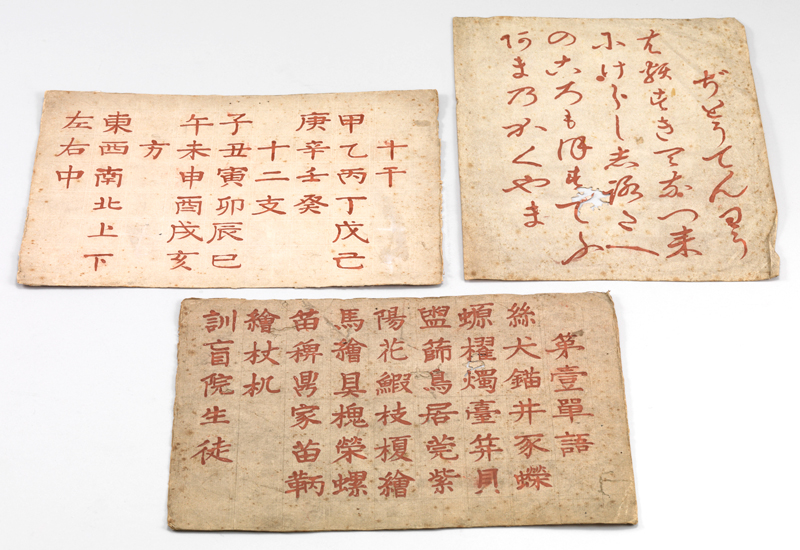 十干
甲乙丙丁戊己
庚辛壬癸
十二支
子丑寅卯辰巳
午未申酉戌亥
方
東西南北上下
左右中
ぢとうてんわう
類き つ来
尓けらし志路たへ
の古ろも てふ
阿ま乃かくやま
第壹單語
絲犬錨井豕蠑
螈櫂燭臺笄貝
盥篩鳥居莞紫
陽花蝦枝榎繪
馬繪具槐榮螺
笛稗鼎家苗
繪杖机
訓盲院生徒